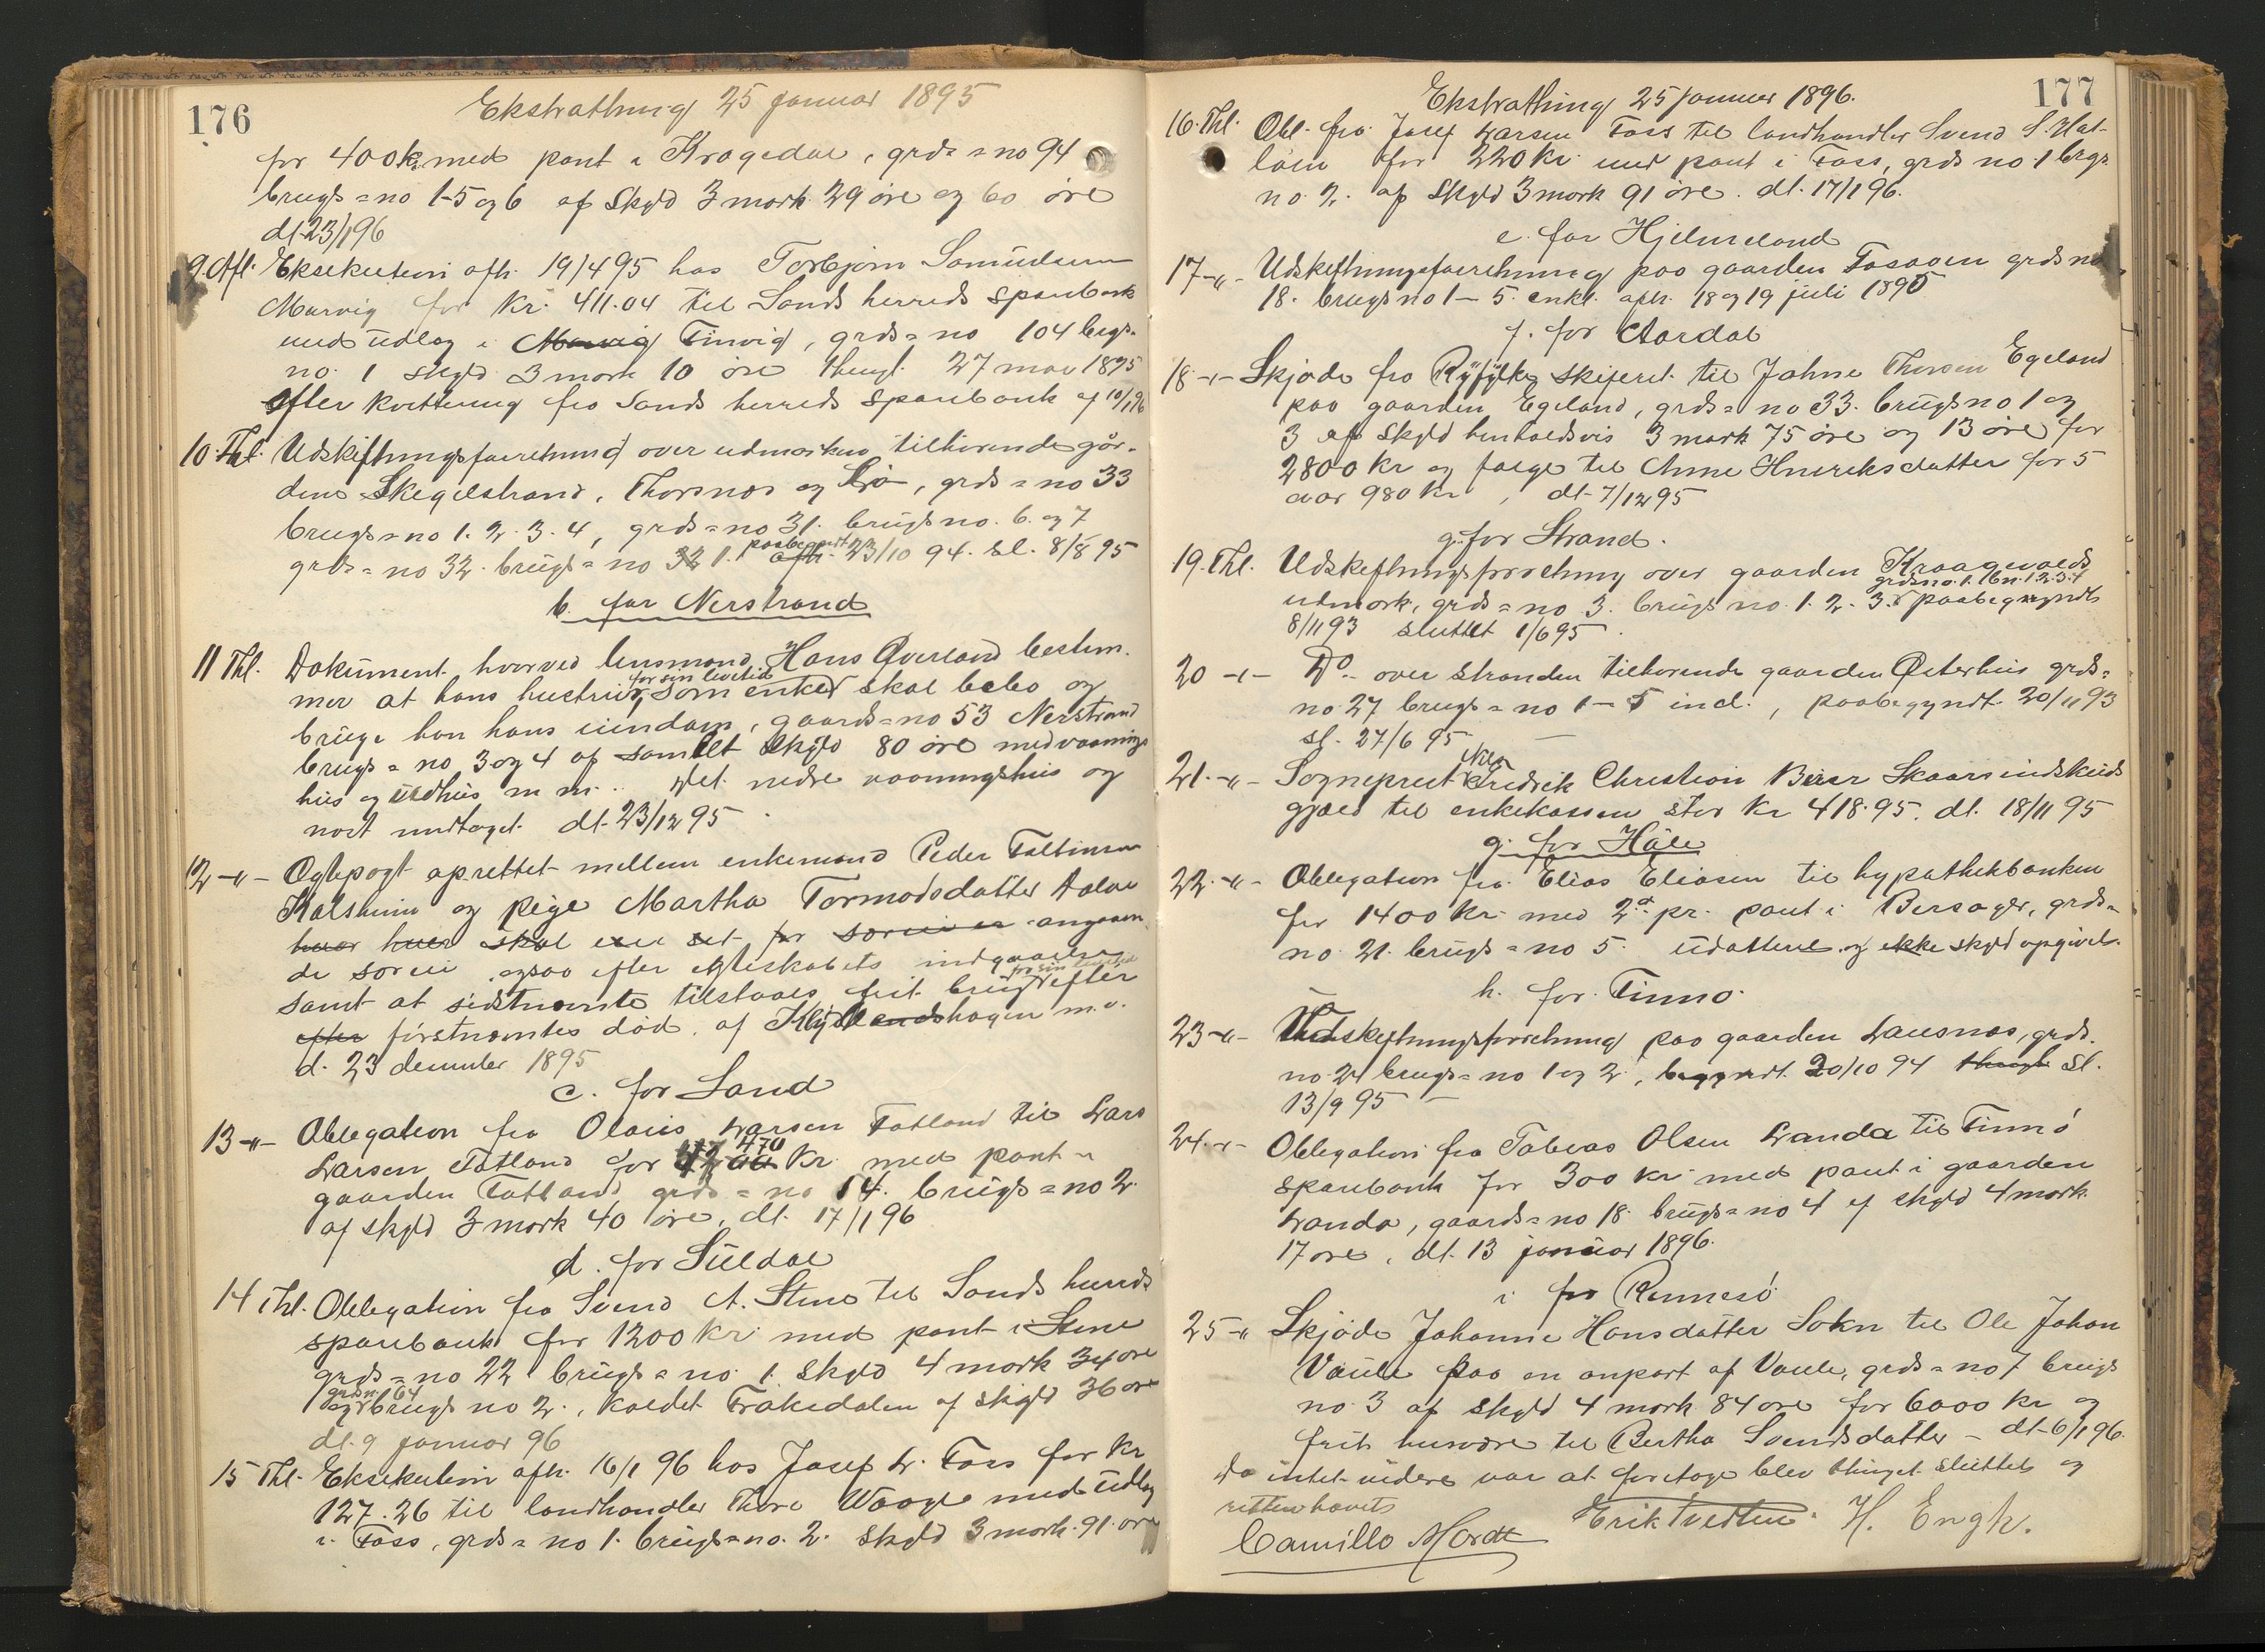 176
Ekstrathing 25 januar 1895
for 400 kr med pant i Kragedal, grds=no 94
brugs=no 1-5 og 6 af Skyld 3 mark 29 øre og 60 øre
dt. 23/1 96
9. Afl. Eksekution afh. 19/4 95 hos Torbjørn Samuelsen
Marvig for Kr. 411.04 til Sands herreds sparebank
med udlæg i Marvig Tinvig, grds=no 104 brgs=
no. 1 skyld 3 mark 10 øre thingl. 27 mai 1895
Efter kvittering fra Sands herreds sparebank af 10/1 96
10. Thl. Udskiftningsforretning over udmarken tilhørende går-
dene Skegelstrand, Thorsnes og Liø, grds=no 33
brugs=no 1. 2. 3. 4, grds=no 31. brugs no. 6. og 7
grds=no 32. brugs=no 32 1. afh. paabegyndt 23/10 94. sl. 8/8 95
b. for Nerstrand
11 Thl. Dokument hvorved lensmand Hans Øverland bestem-
mer at hans hustru, for sin levetid som enke skal bebo og
bruge hans eiendom, gaards=no 53 Nerstrand
brugs=no 3 og 4 af samlet skyld 80 øre med vaanings
hus og udhus m.m. Det nedre vaaningshus og
nøst undtaget. dt. 23/12 95
12 -"- Ægtepagt oprettet mellem enkemand Peder
Kalsheim og pige Martha Tormodsdatter
hvor hver skal særeie angaaen-
de særeie ogsaa efter ægteskabets indgaaelse
samt at sidstnevnte tilstaaes frit brug for sin levetid efter
efter førstnevntes død af m.v.
d. 23 december 1895
c. for Sand
13 -"- Obligation fra Olaus Larsen Fatland til Lars
Larsen Fatland for 470 Kr. med pant i
gaarden Fatland grds=no 54. brugs=no 2.
af skyld 3 mark 40 øre. dt. 17/1 96
d. for Suldal
14 Thl. Obligation fra Svend A. Stene til Sands herreds
sparebank for 1200 Kr. med pant i Stene
grds=no 22 brugs=no. 1. skyld 4 mark 34 øre
og grds n. 64 brugs no 2., kaldet Frakedalen af skyld 36 øre
dt. 9 januar 96
15 Thl. Eksekution afh. 16/1 96 hos Josef L. Foss for Kr
127.26 til landhandler Thore Waage med udlæg
i Foss, grds=no 1. brugs=no. 2. skyld 3 mark. 91 øre
177
Ekstrathing 25 januar 1896.
16. Thl. Obl. fra Josef Larsen Foss til landhandler Svend S. Hat-
løen for 220 kr med pant i Foss, grds no 1 brgs
no. 2. af Skyld 3 mark 91 øre. dt. 17/1 96.
e. for Hjelmeland
17 -"- Udskiftningsforretning paa gaarden Fosaaen grds no
18. brugs no 1 - 5. enkl. afh. 18 og 19 juli 1895
f. for Aardal
18 -"- Skjøde fra Ryfylke skifteret til Jahne Thorsen Egeland
paa gaarden Egeland, grds=no 33. brugs no 1 og
3 af Skyld henholdsvis 3 mark 75 øre og 13 øre for
2800 kr og følge til Anne Henriksdatter for 5
aar 980 kr, dt. 7/12 95
g. for Strand.
19. Thl. Udskiftningsforretning over gaarden Kraagevolds
udmark, grds=no 3. brugs no. 1. 2. 3. grds no. 1. 16 n. 1 2. 3. 4 paabegyndt
8/11 93 sluttet 1/6 95.
20 -"- Do. over stranden tilhørende gaarden Østerhus grds=
no. 27 brugs=no 1 - 5 incl., paabegyndt 20/11 93
sl. 27/6 95 —
21. -"- Sogneprest Fredrik Christian Skaars indskuds
gjæld til enkekassen stor Kr 418.95. dt. 18/11 95
g. for Håle
22. -"- Obligation fra Elias Eliasen til hypothekbanken
for 1400 Kr. med 2d pr. pant i Bersager, grds=
no. 21. brugs=no 5. udateret og ikke skyld opgivet.
h. for Finnø.
23 -"- Udskiftningsforretning paa gaarden Lausnes, grds.
no. 24 brugs=no 1 og 2, begyndt 20/10 94 thingl. sl.
13/9 95 —
24. -"- Obligation fra Tobias Olsen Landa til Finnø
sparebank for 300 kr med pant i gaarden
Landa, gaards=no 18. brugs=no 4 af skyld 4 mark
17 øre, dt. 13 januar 1896.
i for Rennesø
25 -" Skjøde Johanne Hansdatter Sokn til Ole Johan
Vaule paa en anpart af Vaule, grds=no 7 brugs
no. 3 af skyld 4 mark 84 øre for 6000 kr og
frit husvære til Bertha Svendsdatter - dt. 6/1 96.
Da intet videre var at foretage blev thinget sluttet og
retten hævet
Camillo Mordt Erik Tvedten. H. Engh.